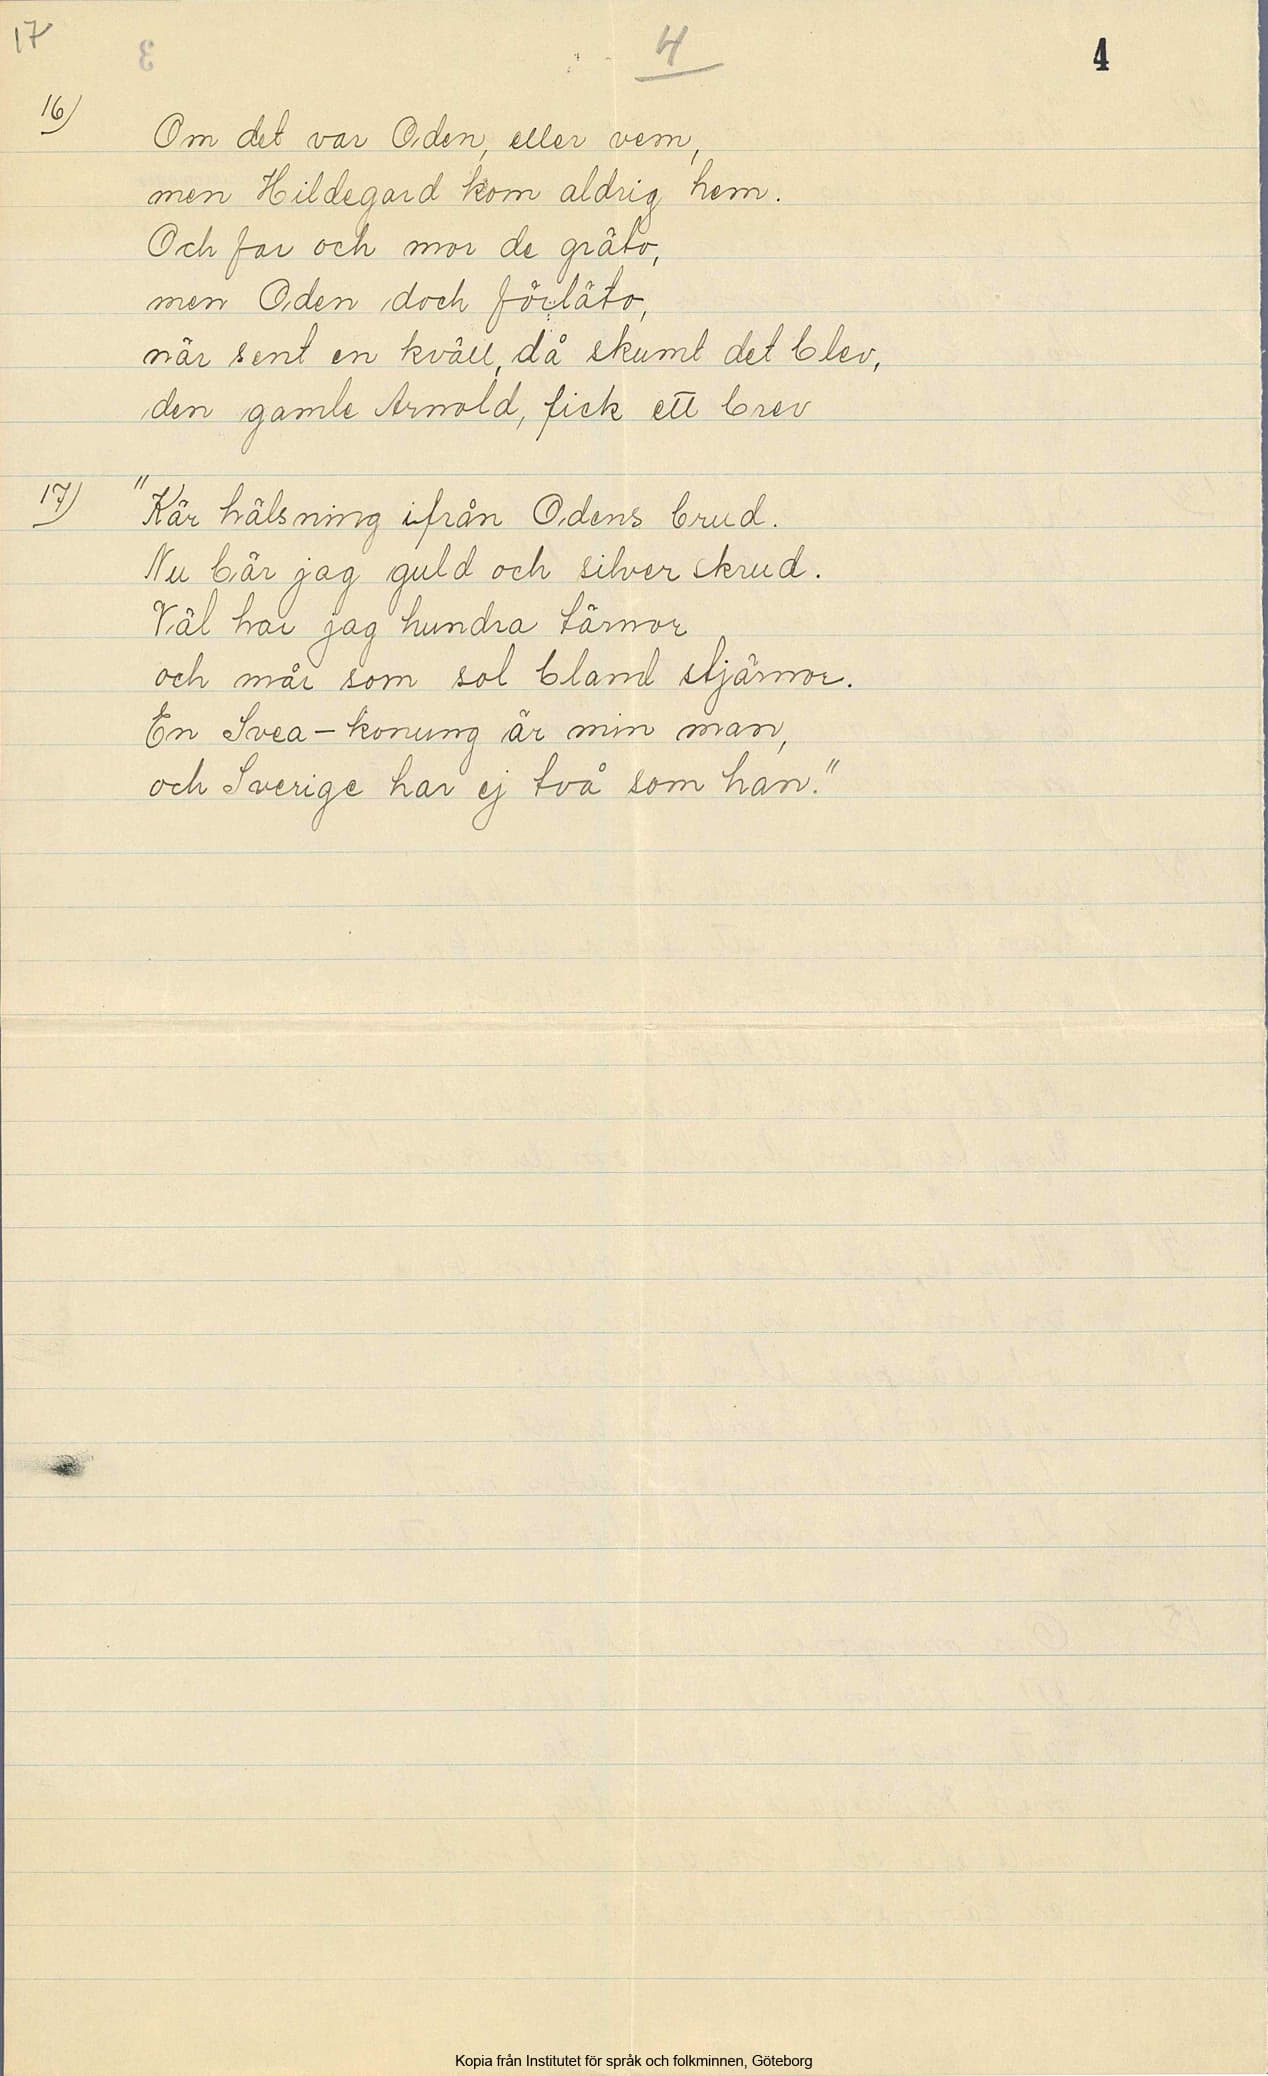 17
4
4
16)
Om det var Oden, eller vem,
men Hildegard kom aldrig hem.
Och far och mor de gräto,
men Oden doch förläto,
när sent en kväll, då skumt det blev,
den gamle Arnold, fick ett brev
17)
"Kär hälsning ifrån Odens brud.
Nu bär jag guld och silver skrud.
Väl har jag hundra tärnor
och mår som sol bland stjärnor.
En Svea-konung är min man,
och Sverige har ej två som han."
Kopia från Institutet för språk och folkminnen, Göteborg